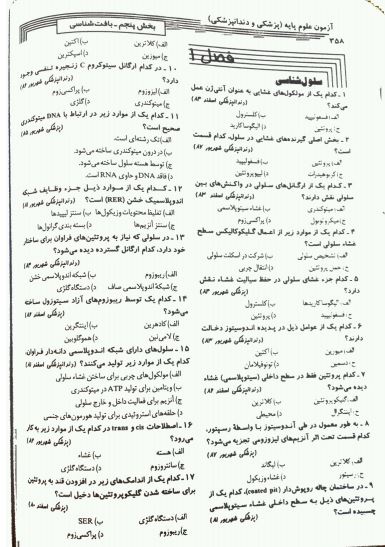 آزمون علوم پایه (پزشکی و دندانپزشکی)
۳۵۸
فصل ۱
سلول‌شناسی
۱ - کدام یک از مولکول‌های غشایی به عنوان آنتی‌ژن عمل
می‌کند؟
الف) فسفولیپید ب) کلسترول
ج) پروتئین د) الیگوساکارید
۲ - بخش اصلی گیرنده‌های غشایی در سلول، کدام قسمت
است؟
الف) پروتئین ب) فسفولیپید
ج) کربوهیدرات د) لیپوپروتئین
۳ - کدام یک از ارگانل‌های سلولی در واکنش‌های بین
سلولی نقش دارند؟
الف) میتوکندری ب) غشاء سیتوپلاسمی
ج) میکروتوبول د) پراکسی‌زوم
۴ - کدام یک از موارد زیر از اعمال گلیکوکالیکس سطح
غشاء سلولی است؟
الف) تشخیص سلولی ب) شرکت در اسکلت سلولی
د) انتقال چربی
۵ - کدام جزء غشای سلولی در حفظ سیالیت غشاء نقش
دارد؟
الف) الیگوساکاریدها ب) کلسترول
ج) فسفولیپید د) پروتئین
۶ - کدام یک از عوامل ذیل در پدیده اندوسیتوز دخالت
دارند؟
الف) میوزین ب) اکتین
ج) دسمین د) تونوفیلامان
۷ - کدام پروتئین فقط در سطح داخلی (سیتوپلاسمی) غشاء
دیده می‌شود؟
الف) گلیکوپروتئین ب) کلاترین
ج) اینتگرال د) محیطی
۸ - به طور معمول در طی آندوسیتوز با واسطهٔ رسپتور،
کدام قسمت تحت اثر آنزیم‌های لیزوزومی تجزیه می‌شود؟
الف) کلاترین ب) لیگاند
ج) رسپتور د) غشاء وزیکول
۹ - در ساختمان چاله روپوش‌دار (coated pit)، کدام یک از
پروتئین‌های ذیل به سطح داخلی غشاء سیتوپلاسمی
چسبیده است؟
بخش پنجم - بافت‌شناسی
الف) کلاترین ب) اکتین
ج) میوزین د) اسپکترین
۱۰ - در کدام ارگانل سیتوکروم C زنجیره تنفسی وجود
دارد؟
الف) لیزوزوم ب) پراکسی‌زوم
ج) میتوکندری د) گلژی
۱۱ - کدام یک از موارد زیر در ارتباط با DNA میتوکندری
صحیح است؟
الف) تک رشته‌ای است.
ب) در درون میتوکندری ساخته می‌شود.
ج) توسط هسته سلول ساخته می‌شود.
د) فاقد DNA و حاوی RNA است.
۱۲ - کدام یک از موارد ذیل جزء وظایف شبکه
اندوپلاسمیک خشن (RER) است؟
الف) تغلیظ محتویات وزیکول‌ها ب) سنتز لیپیدها
ج) سنتز آنزیم‌ها د) بسته بندی گرانول‌ها
۱۳ - در سلولی که نیاز به پروتئین‌های فراوان برای ساختار
خود دارد، کدام ارگانل گسترده دیده می‌شود؟
الف) ریبوزوم ب) شبکه اندوپلاسمی خشن
ج) شبکه اندوپلاسمی صاف د) دستگاه گلژی
۱۴ - کدام یک توسط ریبوزوم‌های آزاد سیتوزول ساخته
می‌شود؟
الف) کادهرین ب) اینتگرین
ج) لامی‌نین د) هموگلوبین
۱۵ - سلول‌های دارای شبکه اندوپلاسمی دانه‌دار فراوان،
کدام یک از موارد زیر تولید می‌کنند؟
الف) مولکول‌های چربی برای ساختن غشاء سلولی
ب) ویتامین برای تولید ATP در میتوکندری
ج) آنزیم برای فعالیت داخل و خارج سلولی
د) حلقه‌های استروئیدی برای تولید هورمون‌های جنسی
۱۶ - اصطلاحات cis و trans در کدام یک از موارد زیر به کار
می‌رود؟
الف) هسته ب) غشاء
ج) سانتروزوم د) دستگاه گلژی
۱۷ - کدام یک از اندامک‌های زیر در افزودن قند به پروتئین
برای ساخته شدن گلیکوپروتئین‌ها دخیل است؟
الف) دستگاه گلژی ب) SER
ج) ریبوزوم د) پراکسی‌زوم